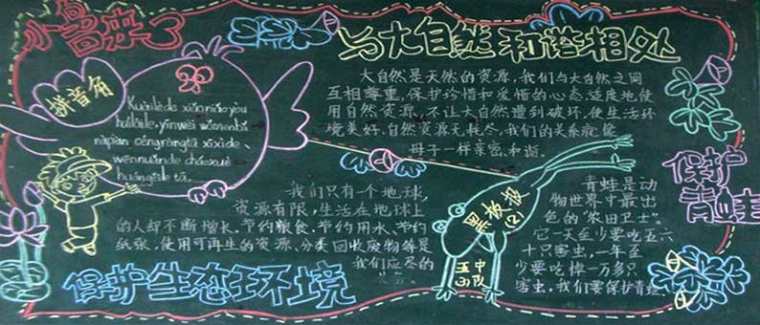 小鸟来了
与大自然和谐相处
拼音角
Kuàilède xiǎoniǎo yòu
huíláile, yīnwèi wǒmenbǎ
nàpiàn cónglín
wēnnuǎnde cháoxué
huángěile tā.
大自然是天然的资源,我们与大自然之间
互相尊重,保护珍惜和爱惜的心态适度地使
用自然资源,不让大自然遭到破坏,使生活环
境美好,自然资源无耗尽,我们的关系就像
母子一样亲密、和谐。
我们只有一个地球,
资源有限,生活在地球上
的人却不断增长,节约粮食、节约用水、节约
纸张、使用可再生的资源、分类回收废物等是
我们应尽的
保护生态环境
黑板报
(2)
五中
小队
保护
青蛙
青蛙是动
物世界中最出
色的“农田卫士”。
它一天至少要吃五六
十只害虫,一年至
少要吃掉一万多只
害虫,我们要保护青蛙